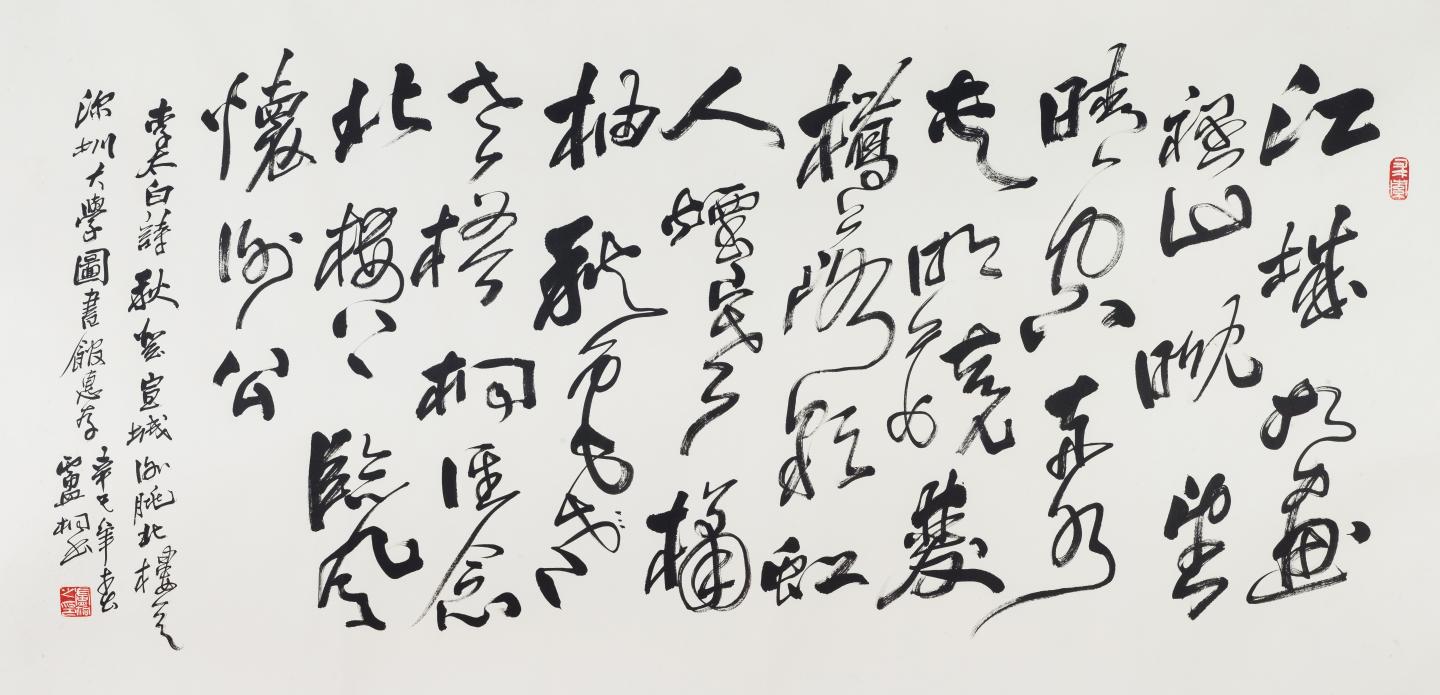 江城如畫
裡山晚望
晴空兩水
夾明鏡雙
橋落彩虹
人煙寒橘
柚秋色老
老梧桐誰念
北樓上臨風
懷謝公
李太白詩秋登宣城謝朓北樓
深圳大學圖書館惠存
辛巳年春
盧桐書